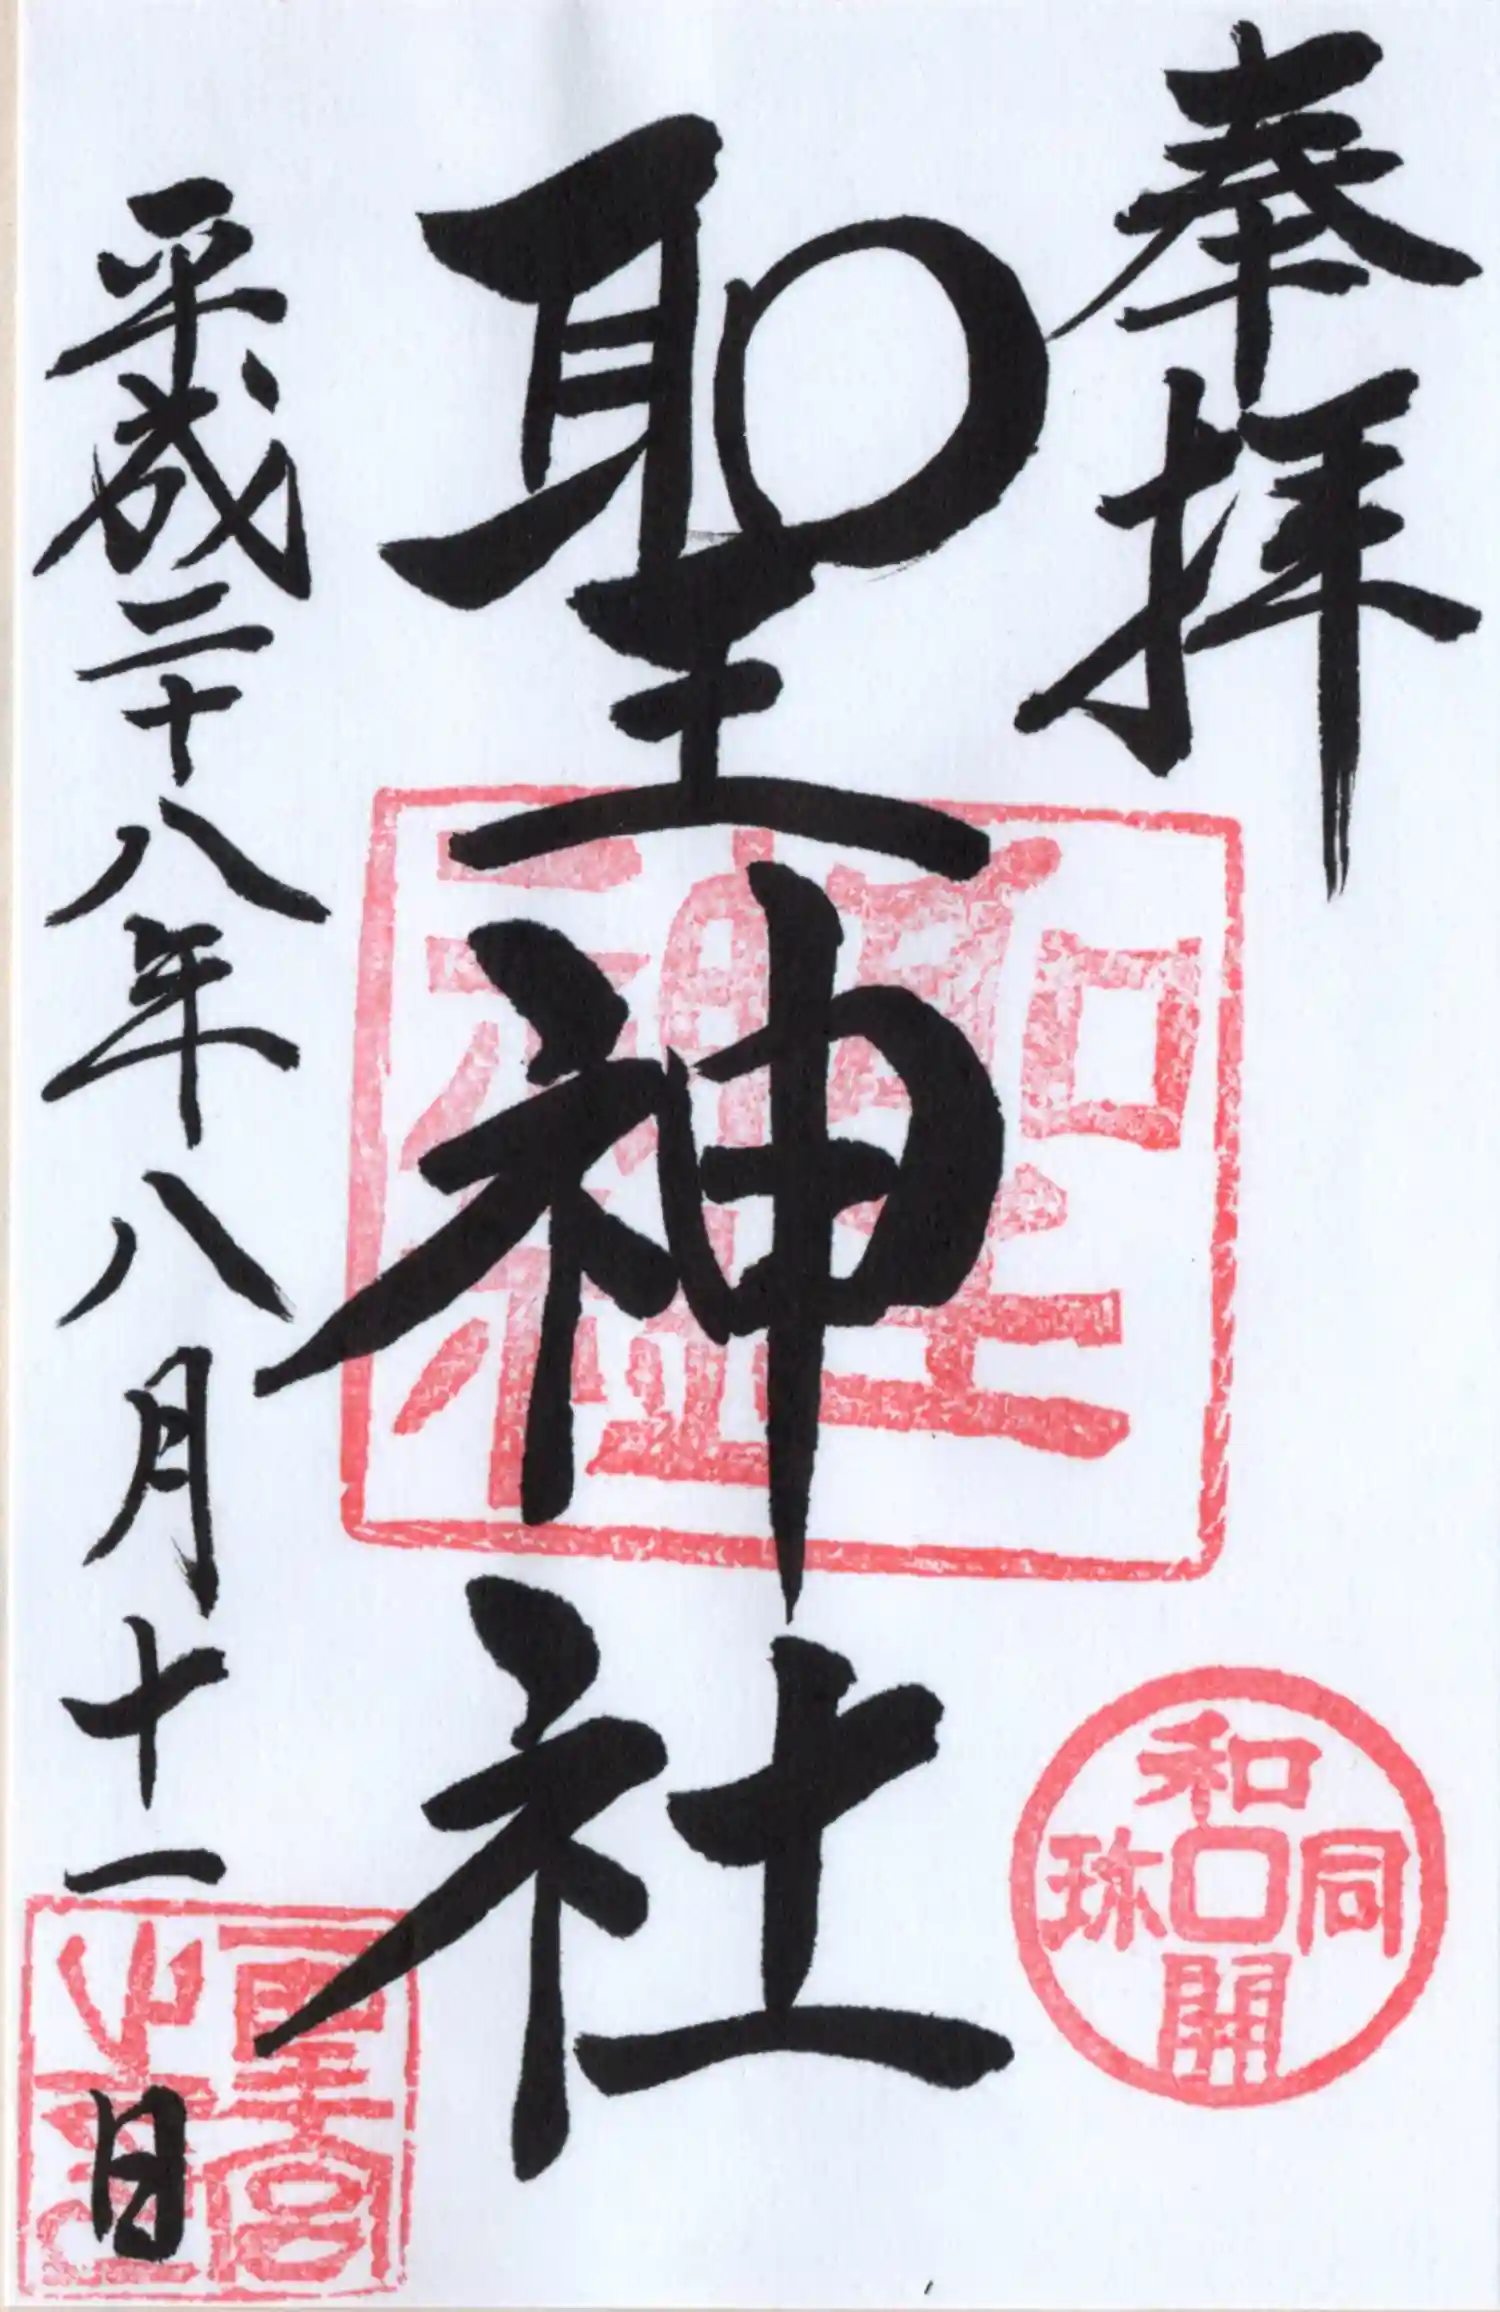 奉拝
聖神社
聖神社
和同開珎
平成二十八年八月十一日